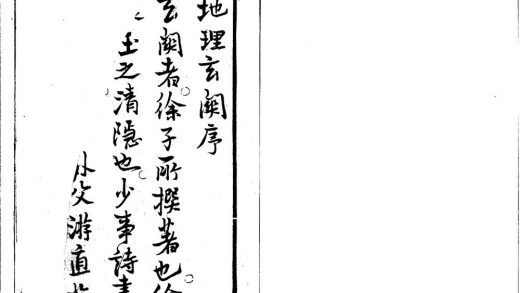 地理玄關序
玄關者徐子所撰著也徐
玉之清隱也少事詩書
父游直